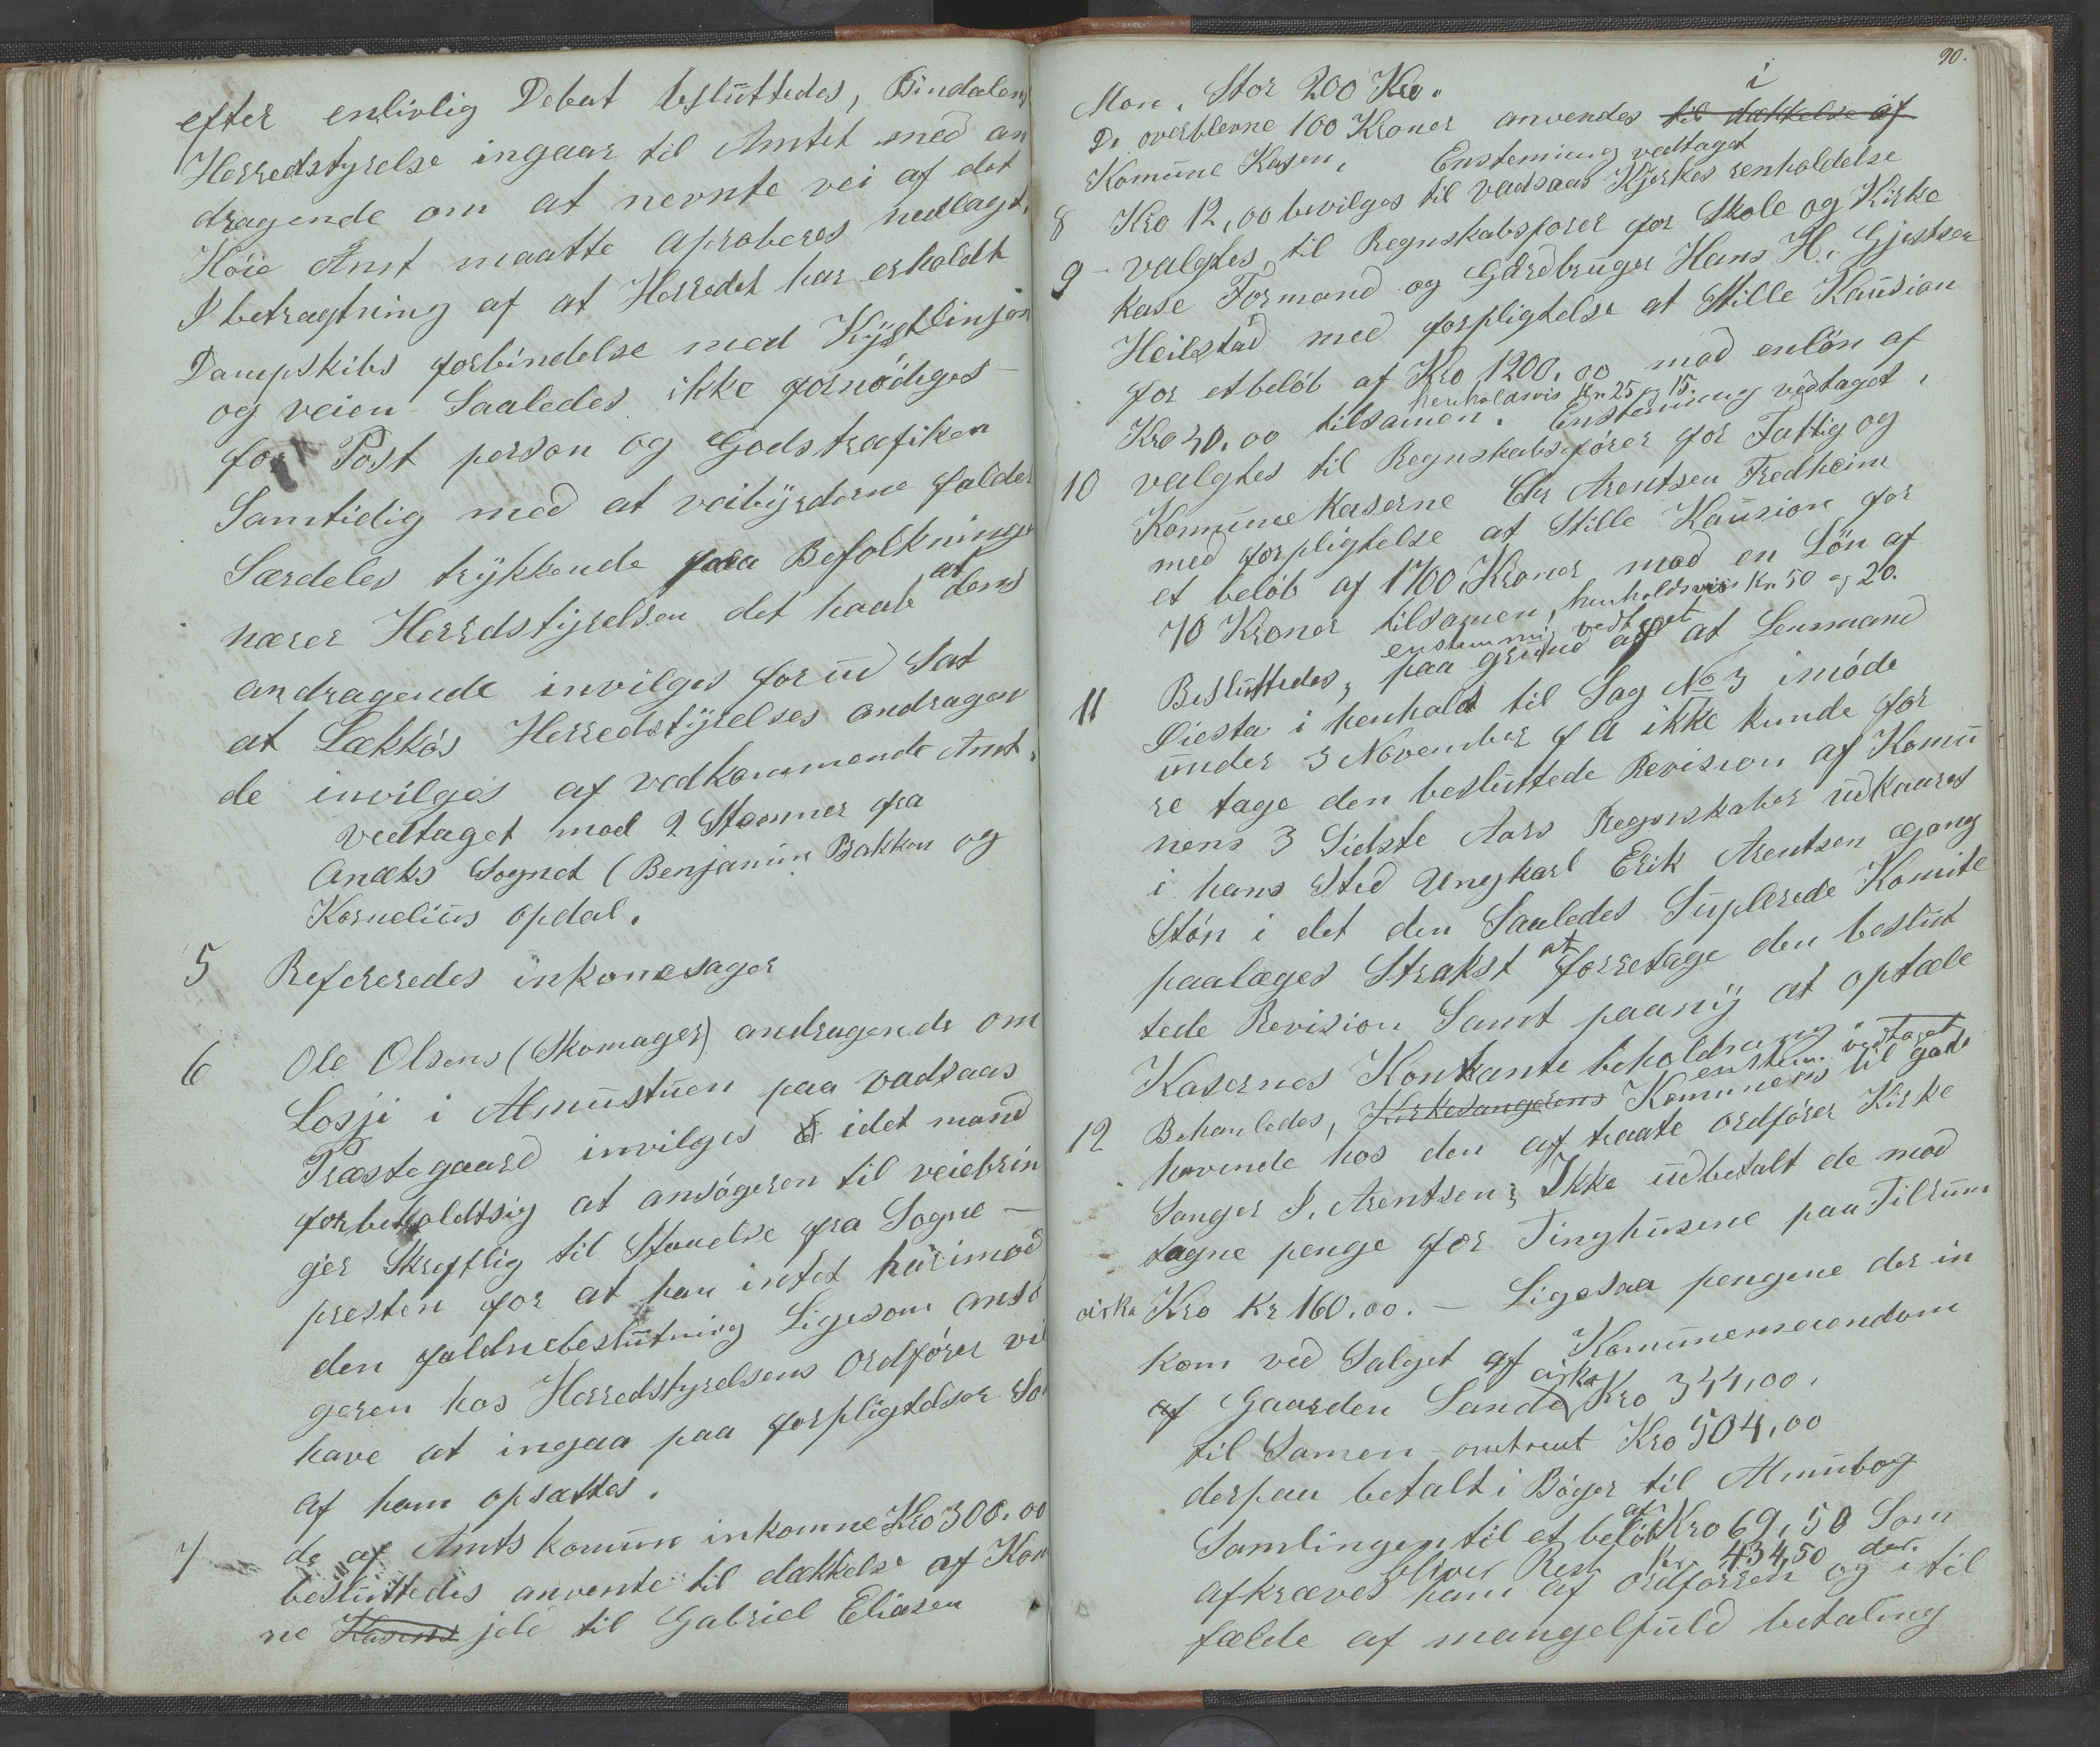 efter enlivlig Debat besluttedes, Bindalens
Herredstyrelse ingaar til Amtet med an
dragende om at nevnte vei af det
Höie Amt maatte aproberes nedlagt,
I betragtning af at Herredet har erholdt
Dampskibs forbindelse med Kystlinjen
og veien Saaledes ikke fornödiges -
for Post person og Godstrafiken
Samtidig med at veibyrderne falder
Særdeles trykkende paa Befolkninge
nærer Herrdstyrelsen det haab at dens
andragende invilges forud Sat
at Lækkös Herredstyrelses andragen
de invilges af vedkommende Amt.
Vedtaget mod 2 Stemmer fra
Anæks Sognet (Benjamin Bakken og
Kornelius Opdal.
5 Refereredes inkomesager
6 Ole Olsens (Skomager) andragende om
Losji i Almustuen paa vadsaas
Præstegaard invilges idet mand
forbeholdtsig at ansögeren til veiebrin
ger Skreftlig til Staaelse fra Sogne -
presten for at han intet har imod
den faldnebeslutning Ligesom ansö
geren hos Herredstyrelsens Ordförer vil
have at ingaa paa forpligtelser So
af ham opsættes.
7 de af Amts komun inkomne Kro 300.00
besluttedes anvente til dækkelse af Kom
ne Kasens jeld til Gabriel Eliasen
90.
Mon. Stor 200 Kro.
De overblevne 100 Kroner anvendes til dækkelse af i
Komune Kasen, Enstemming vedtaget
8 Kro 12,00 bevilges til Vadsaas Kjerkes renholdelse
9 - valgtes til Regnskabsförer for Skole og Kirke
kase Formand og Gardbruger Hans H. Gjestsen
Heilstad med forpligtelse at Stille Kausion
for etbelöb af Kro 1200,00 mod enlön af
henholdsvis Kr. 25 og 15.
Kro 40.00 tilsamen. Enstemming vedtaget.
10 valgtes til Regnskabsförer for Fattig og
Komune Kaserne Chr Arentsen Fredheim
med forpligtelse at Stille Kausion for
et belöb af 1700 Kroner mod en Lön af
70 Kroner tilsamen, henholdsvis Kr. 50 og 20.
enstemmig vedtaget
11 Besluttedes, paa grund af at Lensmand
Diesta i henhold til Sag No 3 imöde
under 3 November f A ikke kunde for
re tage den besluttede Revision af Komu
nens 3 Sidste Aars Regnskaber udkaares
i hans Sted Ungkarl Erik Arentsen Gang
Stön i det den Saaledes Suplerede Komite
paalæges Strakst at forretage den beslut
tede Revision Samt paany at optæle
Kasernes Kontante beholdning
enstem. vedtaget
12 Behanledes, Kirkesangerens Komunens til gode
havende hos den aftraate ordförer Kirke
Sanger I. Arentsen; Ikke udbetalt de mod
tagne penge for Tinghusene paa Tilrum
cirka Kro Kr 160.00. - Ligesaa pengene der in
kom ved Salget af Komunemeiendom
af Gaarden Sande, cirka Kro 344,00.
til Samen - omtrent Kro 504,00
derpaa betalt i Böger til Almubog
Samlingen til et belöb af Kro 69,50 Som
bliver Rest Kr. 434,50 der
afkræves ham af Ordförren og i til
fælde af mangelfuld betaling